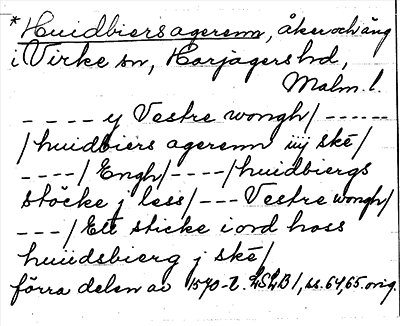 * Huidbiers agerenn, åker och äng
i Virke sn, Harjagers hd,
Malm. l.
- - - - y Vestre wongh/ - - - - - -
/huidbiers agerenn iiij ske/
- - - -/ Engh/ - - - -/huidbiergs
stöcke j less/ - - - Vestre wongh/
- - -/ Ett sticke iord hoss
huiidsbierg j ske/
förra delen av 1570-t. LSLB1, ss. 64, 65. orig.